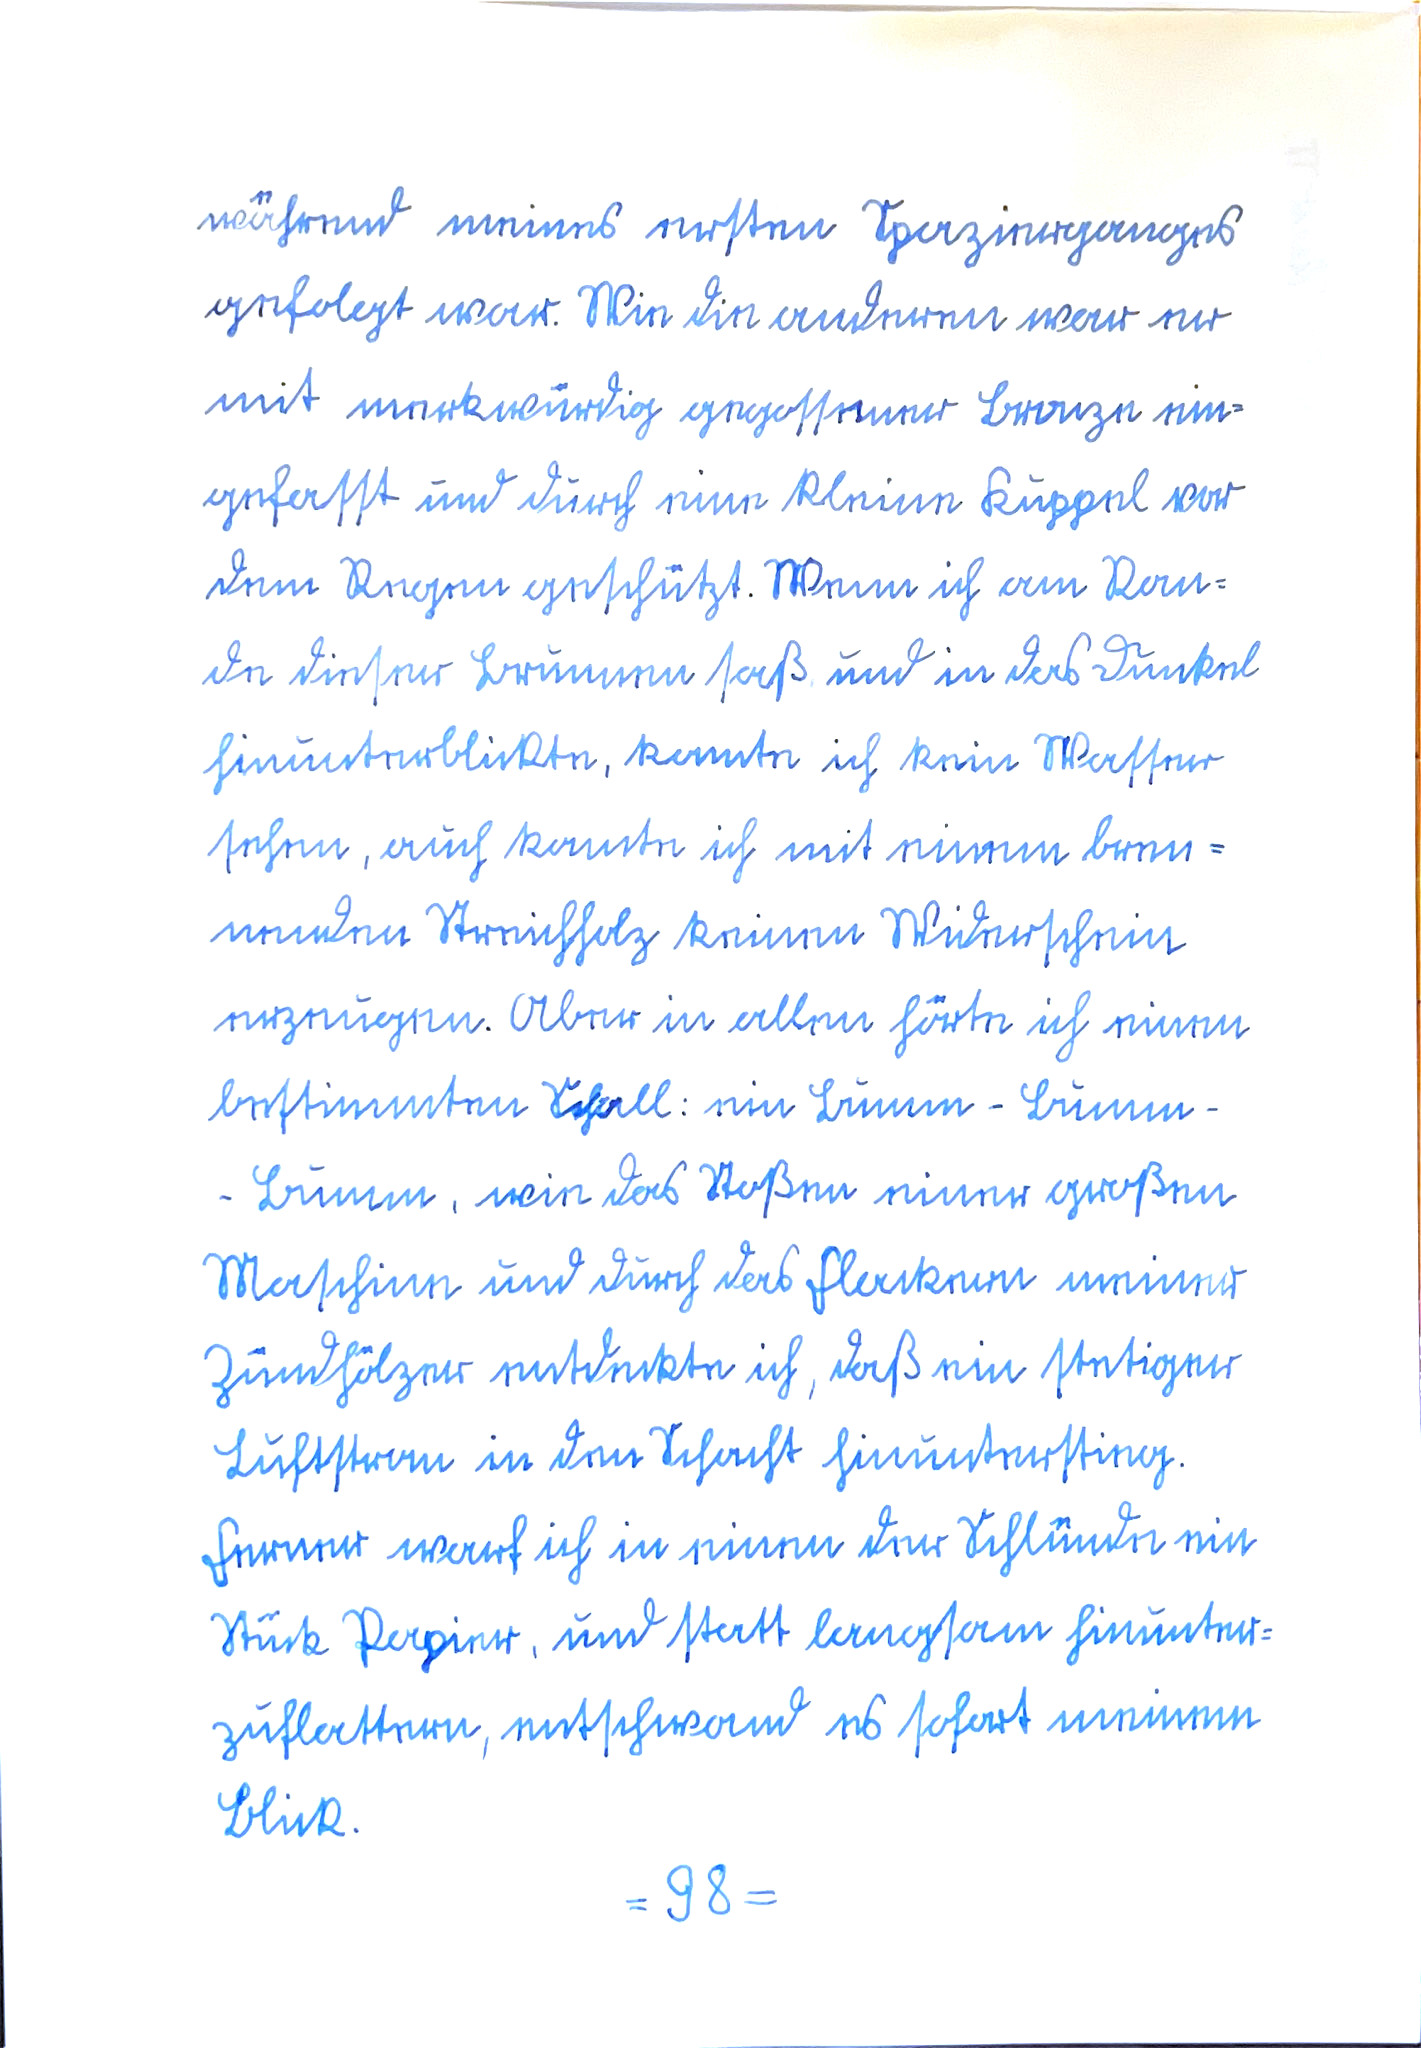 während meines ersten Spazierganges
gefolgt war. Wie die anderen war er
mit merkwürdig gegossener Bronze ein=
gefasst und durch eine kleine Kuppel vor
dem Regen geschützt. Wenn ich am Ran=
de dieser Brunnen saß und in das Dunkel
hinunterblickte, konnte ich kein Wasser
sehen, auch konnte ich mit einem bren=
nenden Streichholz keinen Widerschein
erzeugen. Aber in allen hörte ich einen
bestimmten Schall: ein Bumm - Bumm -
- Bumm, wie das Stoßen einer großen
Maschine und durch das Flackern meiner
Zündhölzer entdeckte ich, daß ein stetiger
Luftstrom in den Schacht hinunterstieg.
Ferner warf ich in einen der Schlünde ein
Stück Papier, und statt langsam hinunter=
zuflattern, entschwand es sofort meinem
Blick.
= 98 =